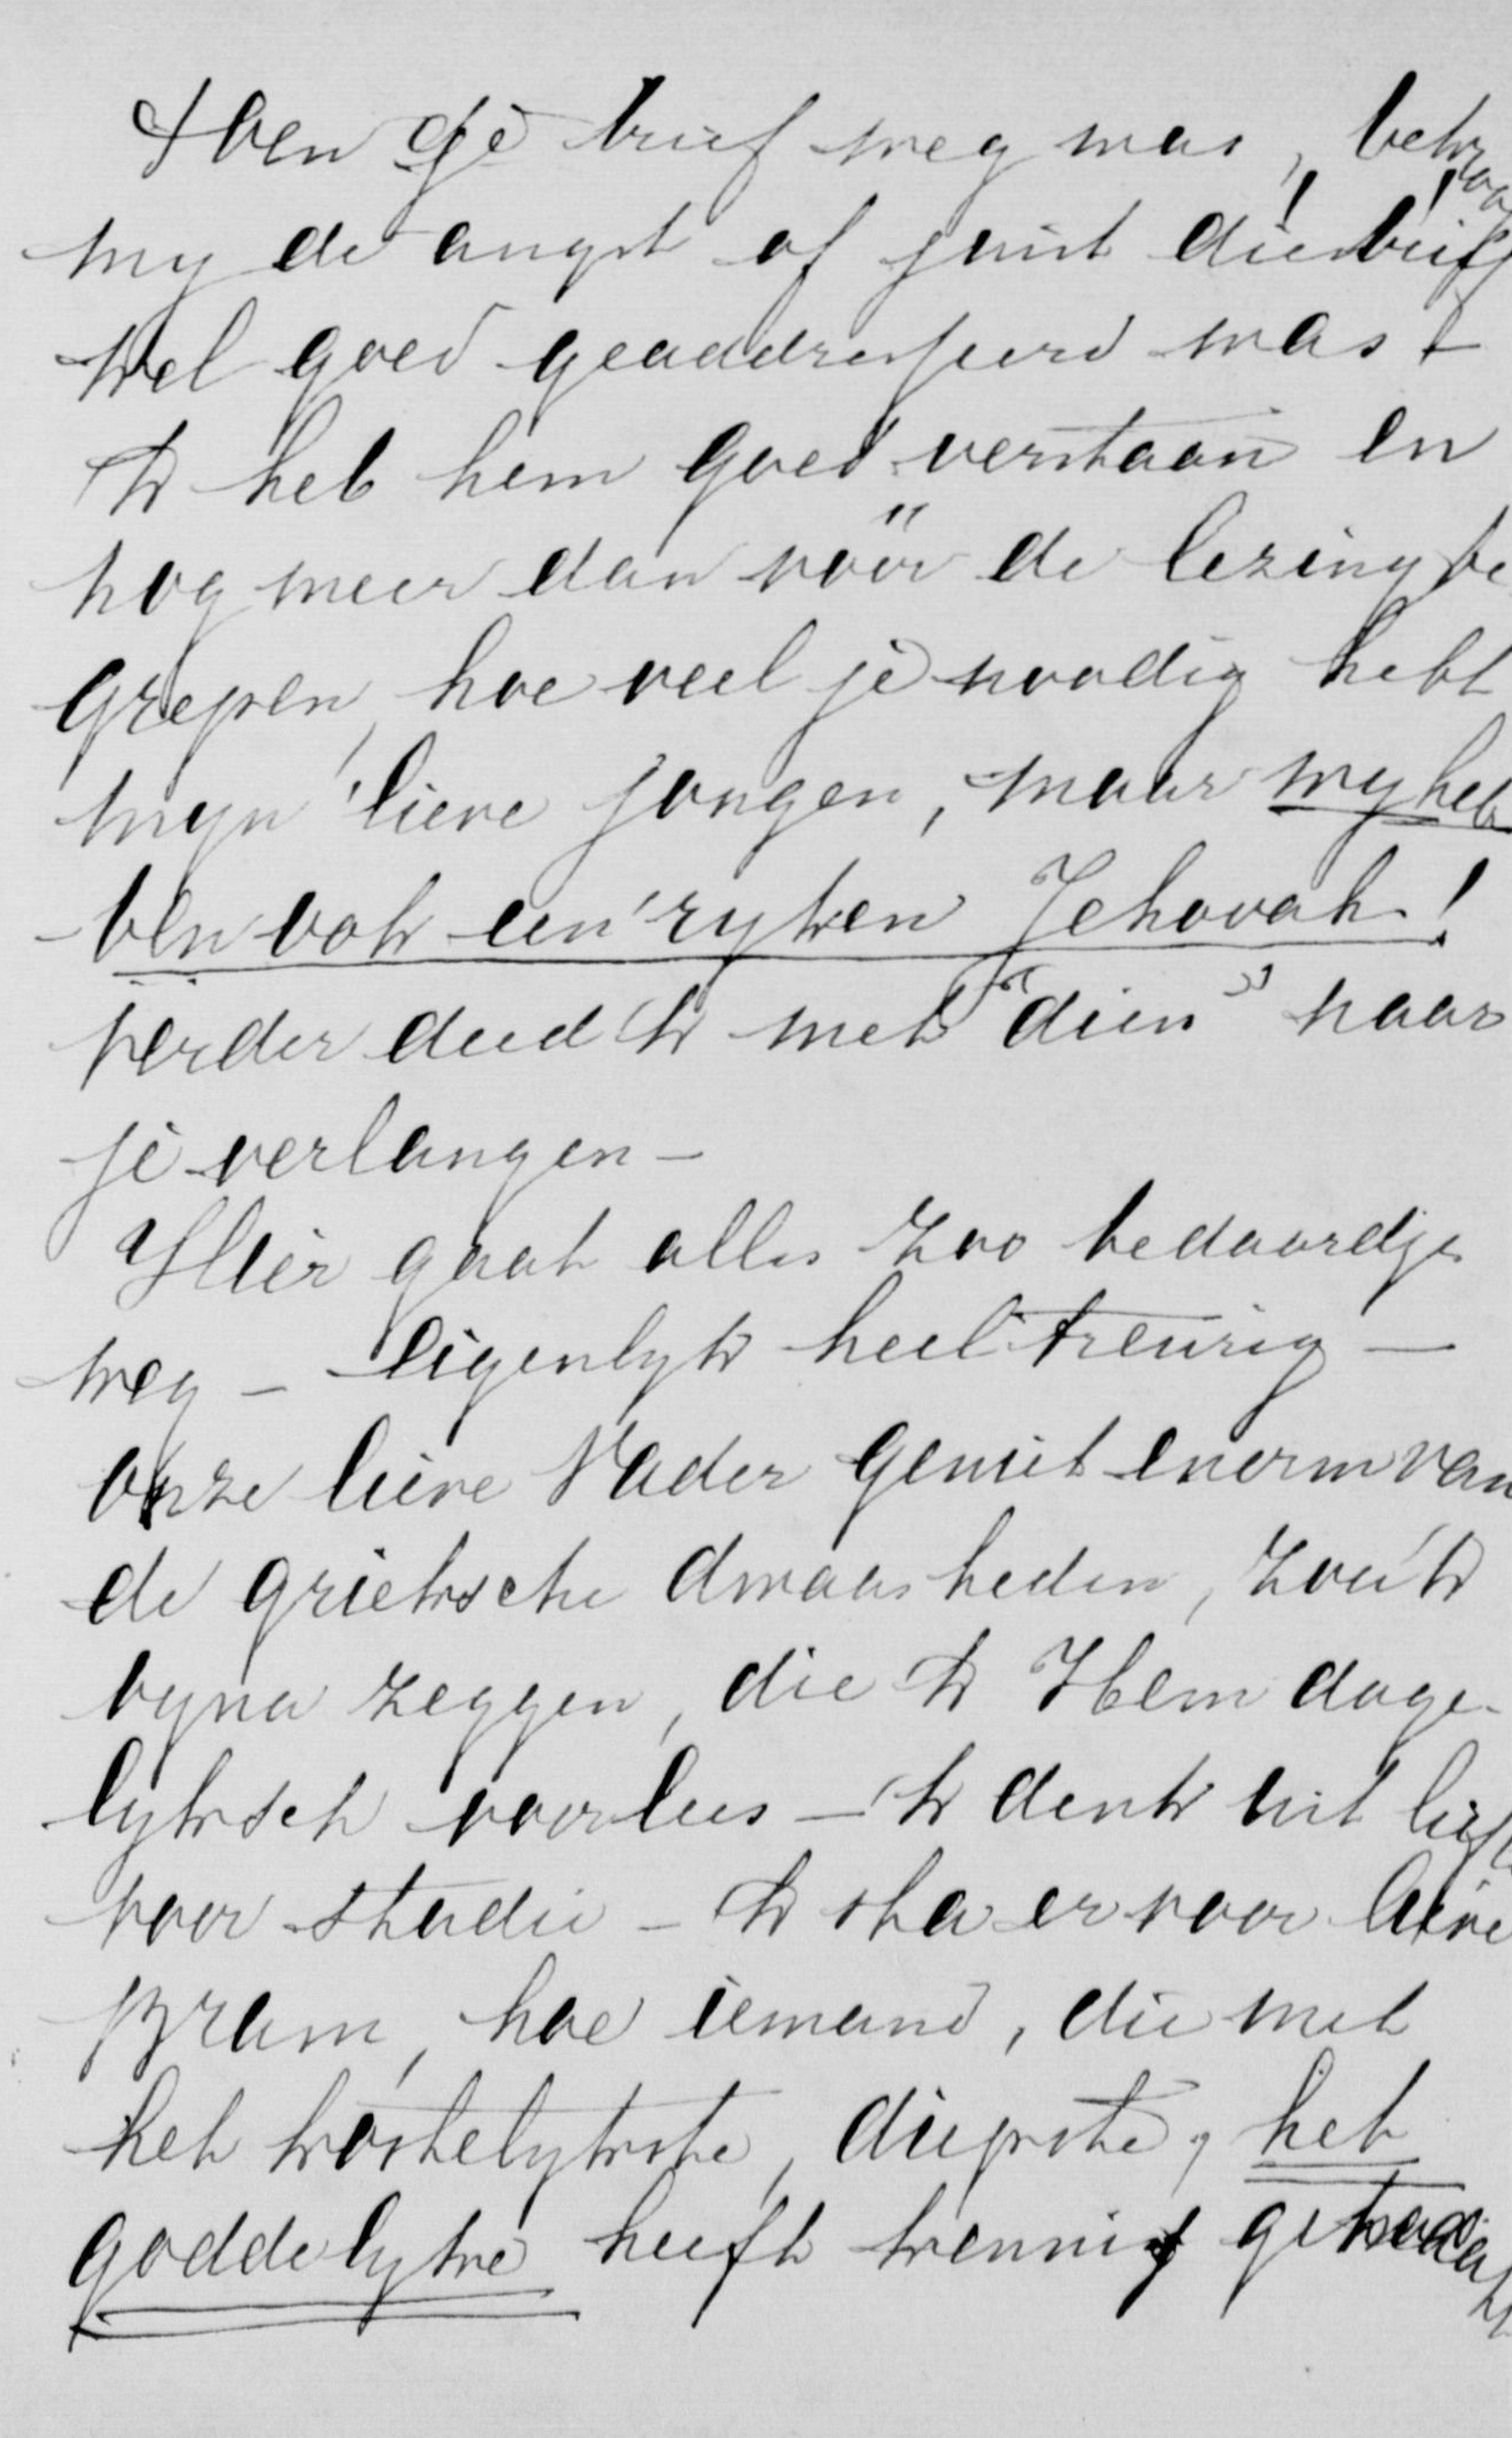 Toen je brief weg was, bekroop
my de angst of juist die brief
wel goed geaddresseerd was –
Ik heb hem goed verstaan en
nog meer dan vóór de lezing be
grepen, hoe veel je noodig hebt
myn lieve jongen, maar wy heb
ben ook een ryken Jehovah!
verder deed ik met "dien" naar
je verlangen –
Hier gaat alles zoo bedaardjes
weg – eigenlyk heel treurig –
onze lieve Vader geniet enorm van
de grieksche dwaasheden, zou ik
byna zeggen, die ik Hem dage-
lyksch voorlees – ik denk uit liefde
voor studie – Ik sta er voor lieve
Bram, hoe iemand, die met
het kostelykste, diepste, het
goddelyke heeft kennis gemaakt